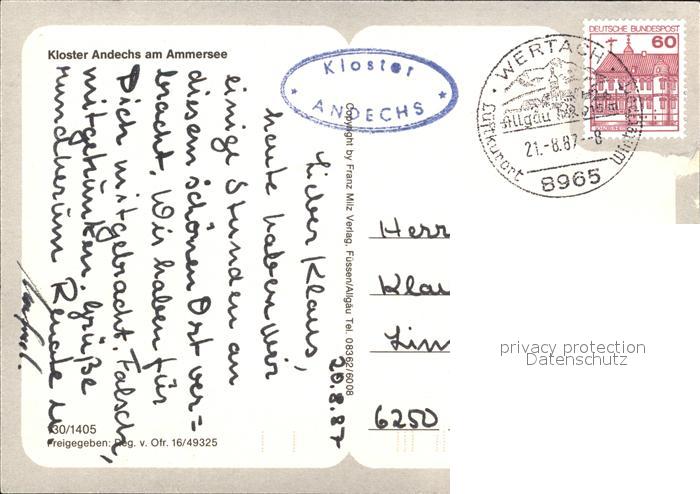 Kloster Andechs am Ammersee
Kloster
ANDECHS
20.8.87
Lieber Klaus,
heute haben wir
einige Stunden an
diesem schönen Ort ver=
bracht. Wir haben für
Dich mitgebracht. Falsch,
mitgetrunken. Grüße
rundherum Renate u.
130/1405
Freigegeben: Reg. v. Ofr. 16/49325
Copyright by Franz Milz Verlag, Füssen/Allgäu Tel. 08362/6008
DEUTSCHE BUNDESPOST
60
WERTACH
Luftkurort
21.-8.87.-8
8965
Herr
Klau
Lim
6250
privacy protection
Datenschutz